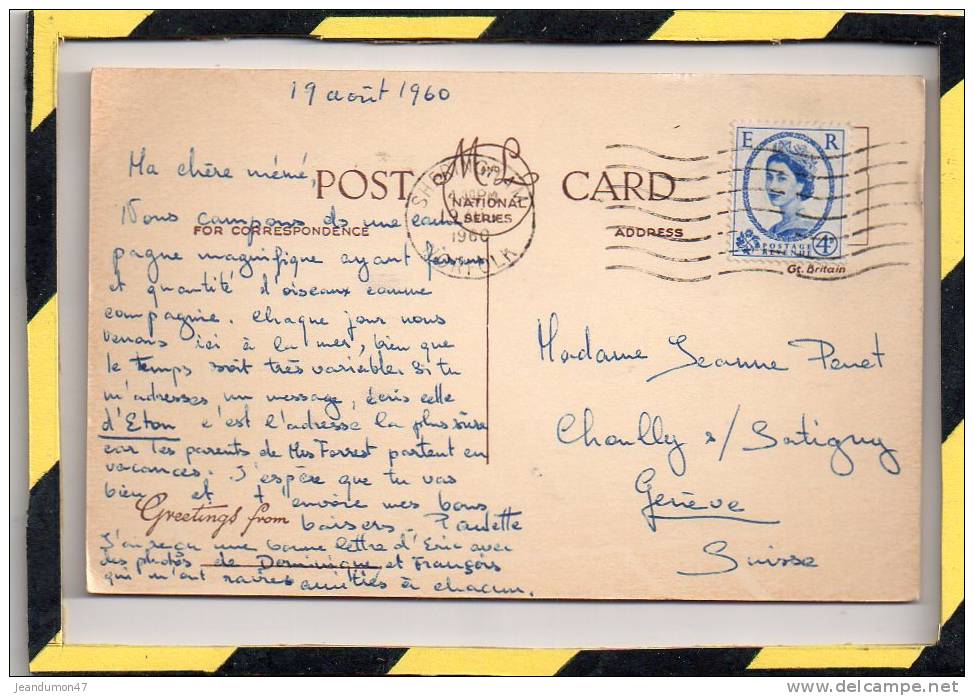 19 août 1960
Ma chère mémé,
POST CARD
M L
NATIONAL
SERIES
FOR CORRESPONDENCE
ADDRESS
E R
POSTAGE
REVENUE
4D
Gt. Britain
1960
NORFOLK
Nous campons ds une cam
pagne magnifique ayant
et quantité d'oiseaux comme
compagnie. Chaque jour nous
venons ici à la mer, bien que
le temps soit très variable. Si tu
m'adresses un message, écris celle
d'Eton c'est l'adresse la plus sûre
car les parents de Miss Forrest partent en
vacances. J'espère que tu vas
bien et t'envoie mes bons
Greetings from
baisers. Paulette
J'ai reçu une bonne lettre d'Eric avec
des photos de Dominique et François
qui m'ont ravie amitiés à chacun.
Madame Jeanne Penet
Choully s/ Satigny
Genève
Suisse
jeandumon47
www.delcampe.net